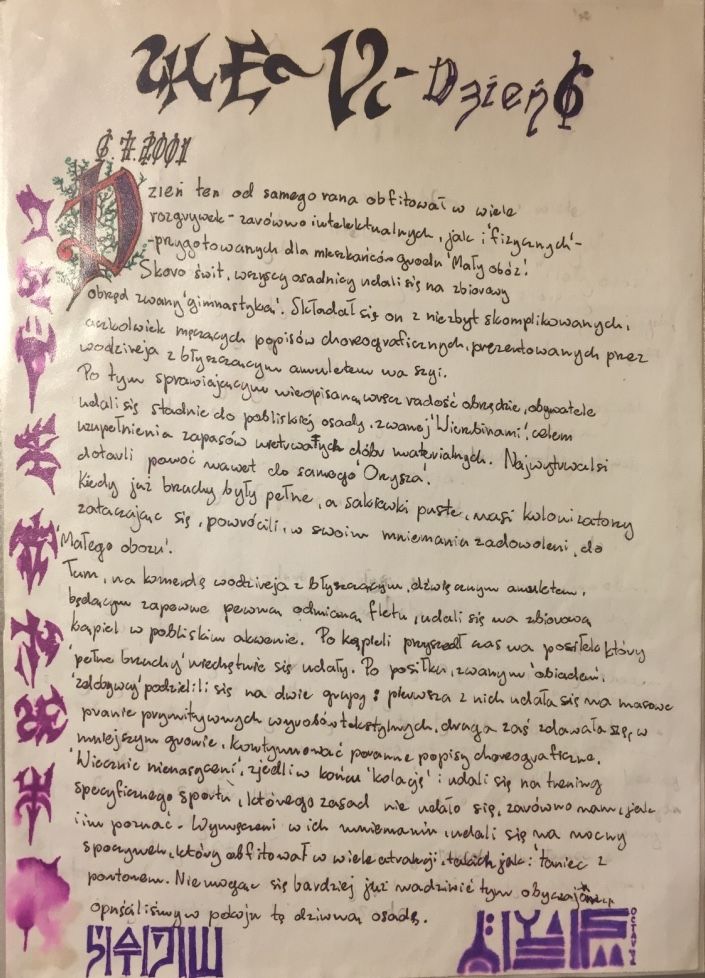 Dzień 6
6.7.2001
Dzień ten od samego rana obfitował w wiele
rozgrywek - zarówno intelektualnych, jak i 'fizycznych' -
- przygotowanych dla mieszkańców grodu 'Mały obóz'.
Skoro świt, wszyscy osadnicy udali się na zbiorowy
obrzęd zwany 'gimnastyką'. Składał się on z niezbyt skomplikowanych,
aczkolwiek męczących popisów choreograficznych, prezentowanych przez
wodzireja z błyszczącym amuletem na szyi.
Po tym sprawiającym nieopisaną wręcz radość obrzędzie, obywatele
udali się stadnie do pobliskiej osady, zwanej 'Wierzbinami', celem
uzupełnienia zapasów nietrwałych dóbr materialnych. Najwytrwalsi
dotarli ponoć nawet do samego 'Orzysza'.
Kiedy już brzuchy były pełne, a sakiewki puste, nasi kolonizatorzy
zataczając się, powrócili, w swoim mniemaniu zadowoleni, do
'Małego obozu'.
Tam, na komendę wodzireja z błyszczącym, dźwięcznym amuletem,
będącym zapewne pewną odmianą fletu, udali się na zbiorową
kąpiel w pobliskim akwenie. Po kąpieli przyszedł czas na posiłek, który
'pełne brzuchy' niechętnie się udały. Po posiłku, zwanym 'obiadem',
'zdobywcy' podzielili się na dwie grupy: pierwsza z nich udała się na masowe
pranie prymitywnych wyrobów tekstylnych, druga zaś zdawała się, w
mniejszym gronie, kontynuować poranne popisy choreograficzne.
'Wiecznie nienasyceni', zjedli w końcu 'kolację' i udali się na trening
specyficznego sportu, którego zasad nie udało się, zarówno nam, jak
i im poznać. Wymęczeni w ich mniemaniu, udali się na nocny
spoczynek, który obfitował w wiele atrakcji, takich jak: 'taniec z
pontonem'. Nie mogąc się bardziej już nadziwić tym obyczajom,
opuściliśmy w pokoju tę dziwną osadę.
OCTAVIA